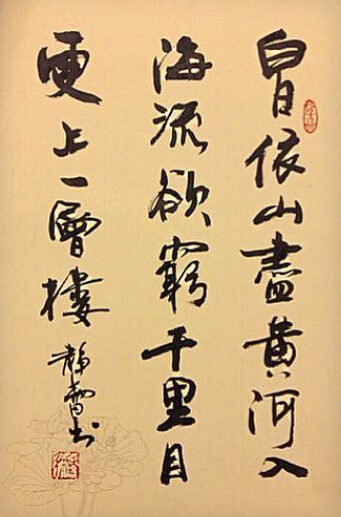 白日依山盡黃河入
海流欲窮千里目
更上一層樓
靜雪书